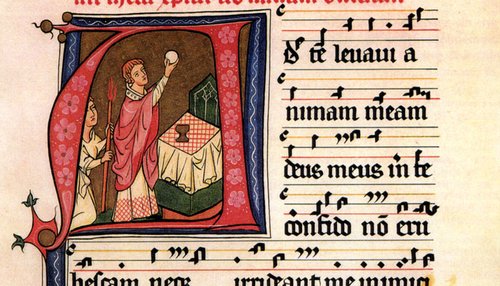 AD te leuaui a
nimam meam
deus meus in te
confido nō eru
bescam neq irrideant me inimici